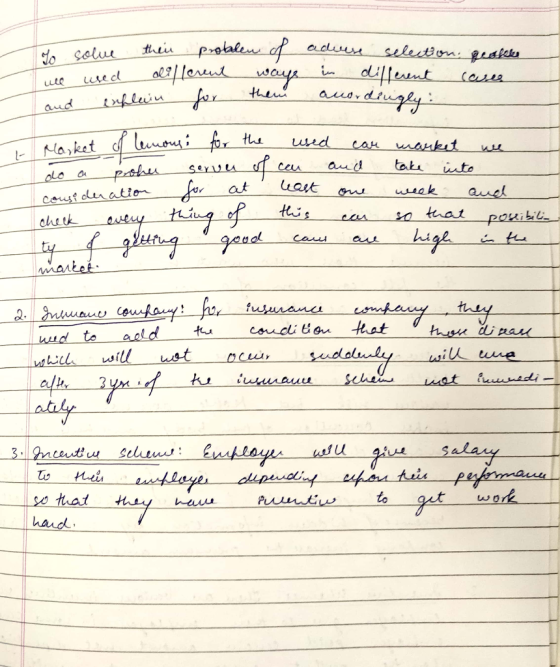 To solve their problem of adverse selection.
we used different ways in different cases
and explain for them accordingly:
1- Market of lemons: for the used car market we
do a proper server of car and take into
consideration for at least one week and
check every thing of this car so that posibili
ty of getting good cars are high in the
market.
2. Insurance company: for insurance company, they
need to add the condition that those disease
which will not occur suddenly will cure
after 3yrs. of the insurance scheme not immedi-
ately
3. Incentive scheme: Employer will give salary
to their employee depending upon their performance
so that they have incentive to get work
hard.